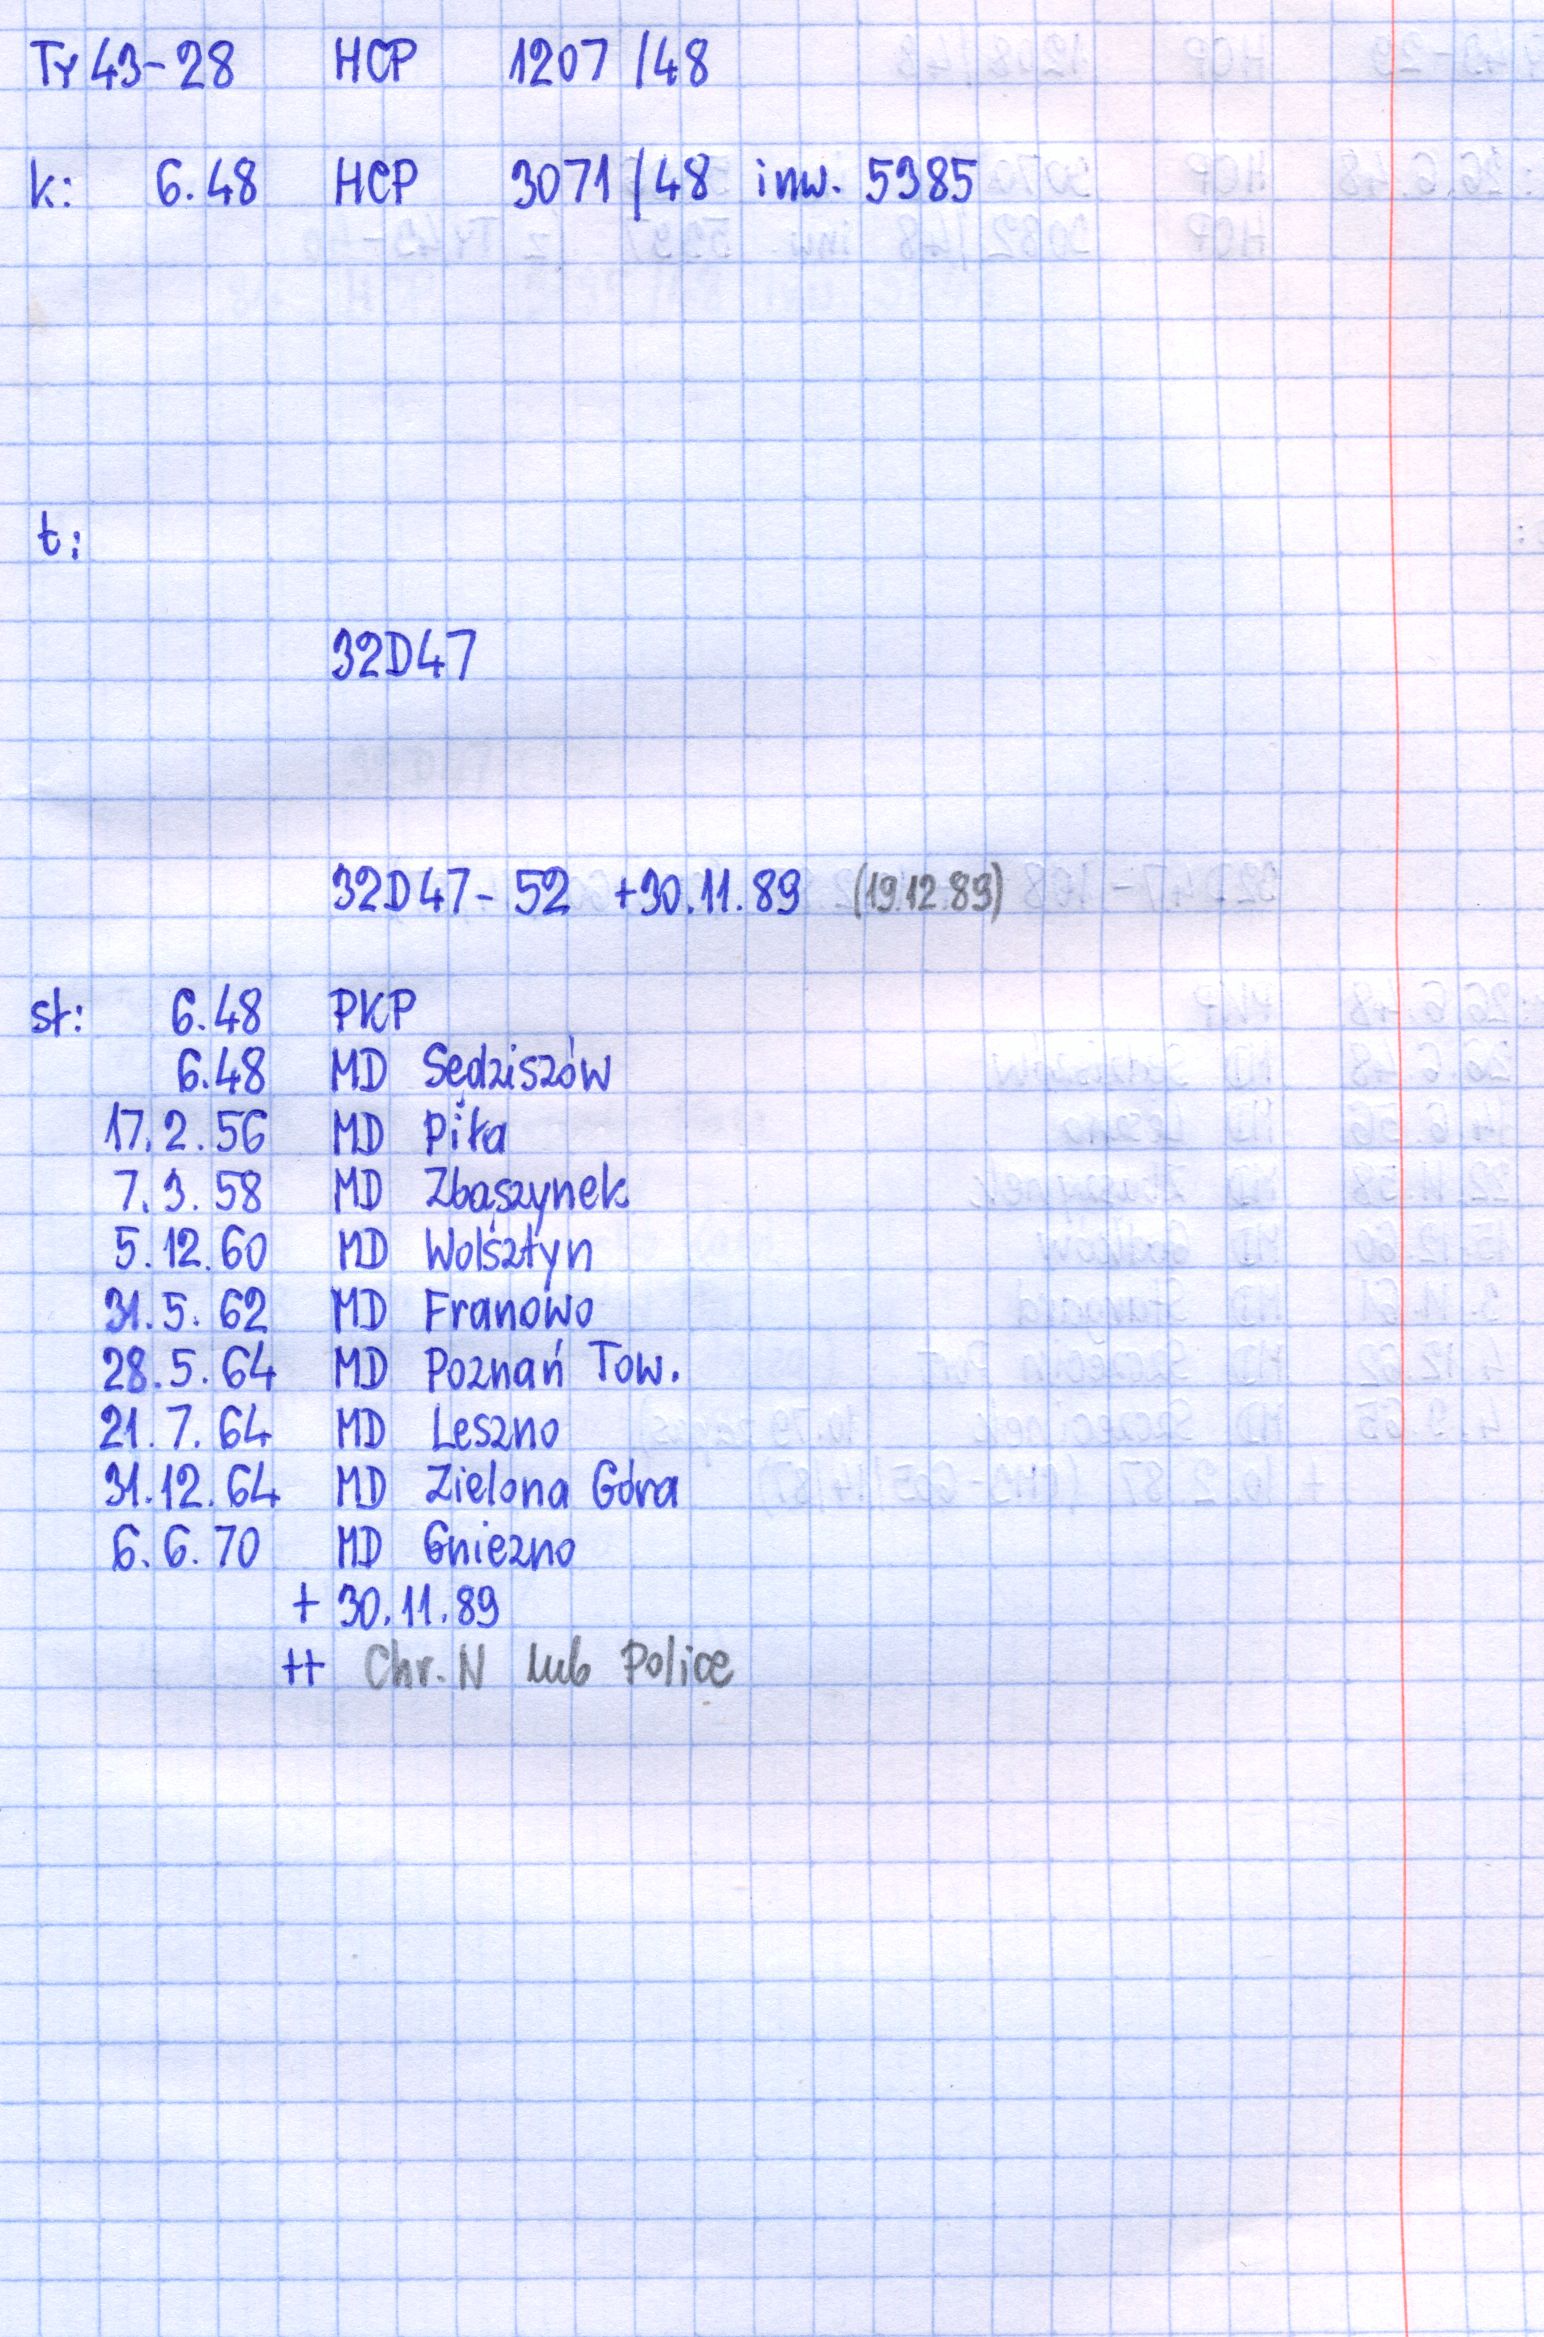 Ty43-28 HCP 1207/48
k: 6.48 HCP 3071/48 inw. 5385
t:
32D47
32D47-52 +30.11.89 (19.12.89)
st: 6.48 PKP
6.48 MD Sędziszów
17.2.56 MD Piła
7.3.58 MD Zbąszynek
5.12.60 MD Wolsztyn
31.5.62 MD Franowo
28.5.64 MD Poznań Tow.
21.7.64 MD Leszno
31.12.64 MD Zielona Góra
6.6.70 MD Gniezno
+ 30.11.89
++ Chr. N lub Police